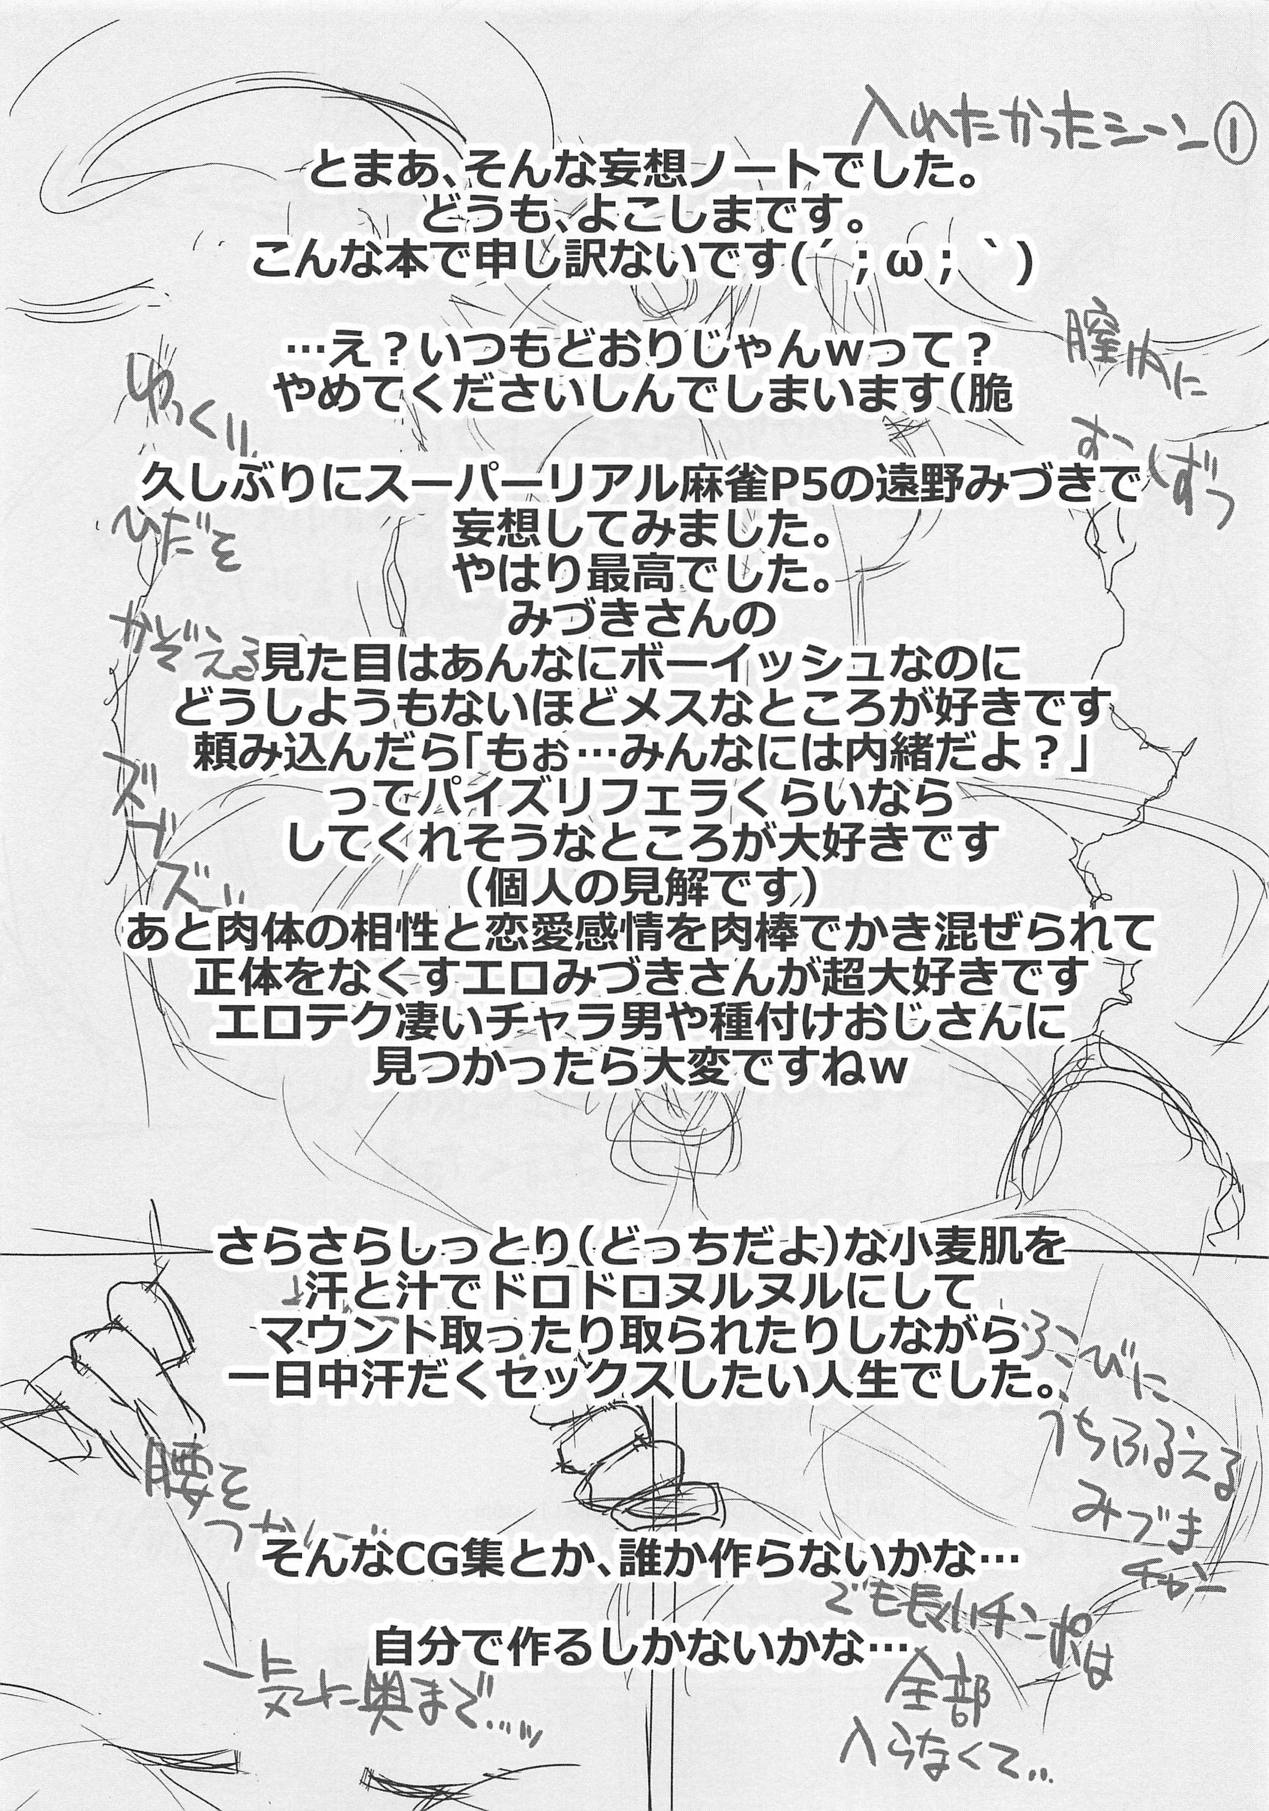 入れたかったシーン①
とまあ、そんな妄想ノートでした。
どうも、よこしまです。
こんな本で申し訳ないです(´；ω；｀)
…え？いつもどおりじゃんwって？
やめてくださいしんでしまいます(脆
久しぶりにスーパーリアル麻雀P5の遠野みづきで
妄想してみました。
やはり最高でした。
みづきさんの
見た目はあんなにボーイッシュなのに
どうしようもないほどメスなところが好きです
頼み込んだら「もぉ…みんなには内緒だよ？」
ってパイズリフェラくらいなら
してくれそうなところが大好きです
（個人の見解です）
あと肉体の相性と恋愛感情を肉棒でかき混ぜられて
正体をなくすエロみづきさんが超大好きです
エロテク凄いチャラ男や種付けおじさんに
見つかったら大変ですねw
さらさらしっとり（どっちだよ）な小麦肌を
汗と汁でドロドロヌルヌルにして
マウント取ったり取られたりしながら
一日中汗だくセックスしたい人生でした。
そんなCG集とか、誰か作らないかな…
自分で作るしかないかな…
膣内に
すこしずつ
ゆっくり
ひだを
かぞえる
ズブズブ
腰を
一気に奥まで…
よろこびに
うちふるえる
みづき
チャン
でも長いチンポは
全部
入らなくて…